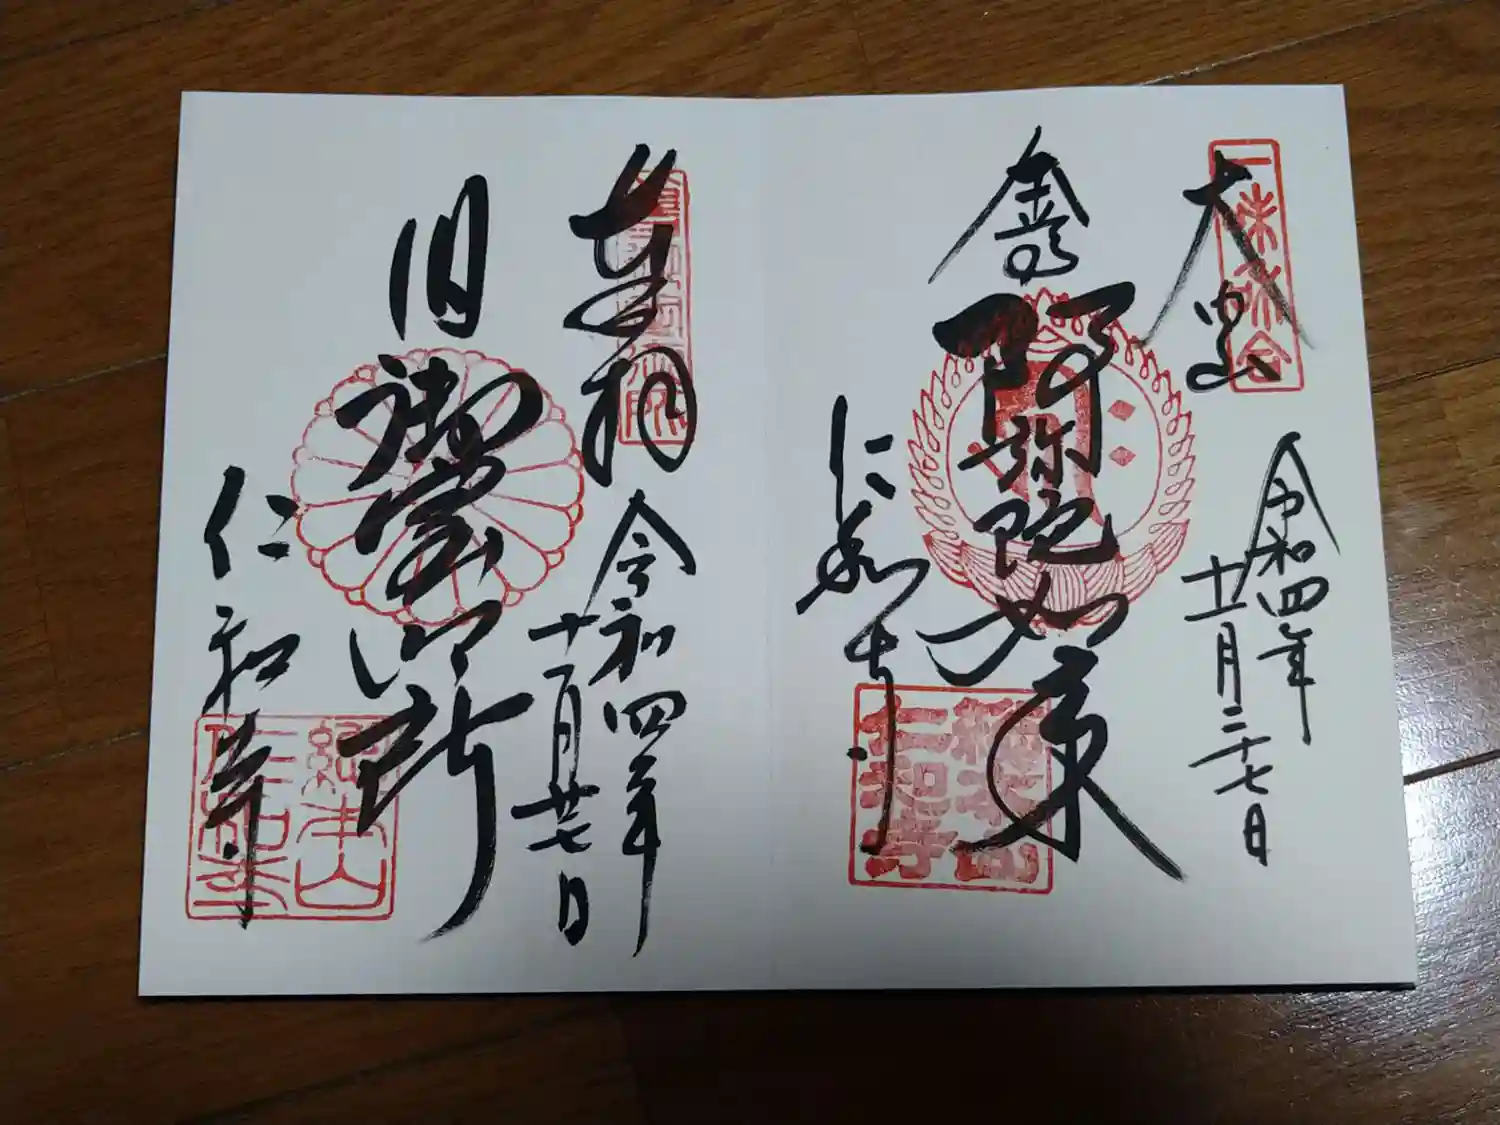 令和四年
十一月二十七日
阿弥陀如来
仁和寺
奉拝
令和四年
十一月廿七日
旧御室御所
仁和寺
総本山
仁和寺